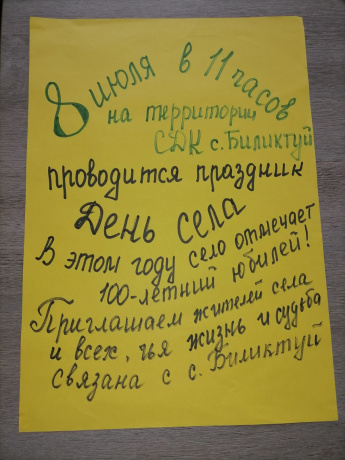 8 июля в 11 часов
на территории
СДК с. Биликтуй
проводится праздник
День села
В этом году село отмечает
100-летний юбилей!
Приглашаем жителей села
и всех, чья жизнь и судьба
связана с с. Биликтуй